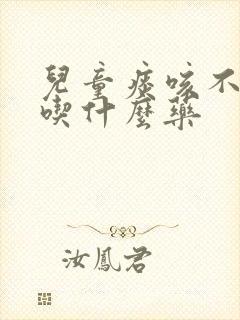 兒童痰咳不
喫什麼藥
汝鳳君